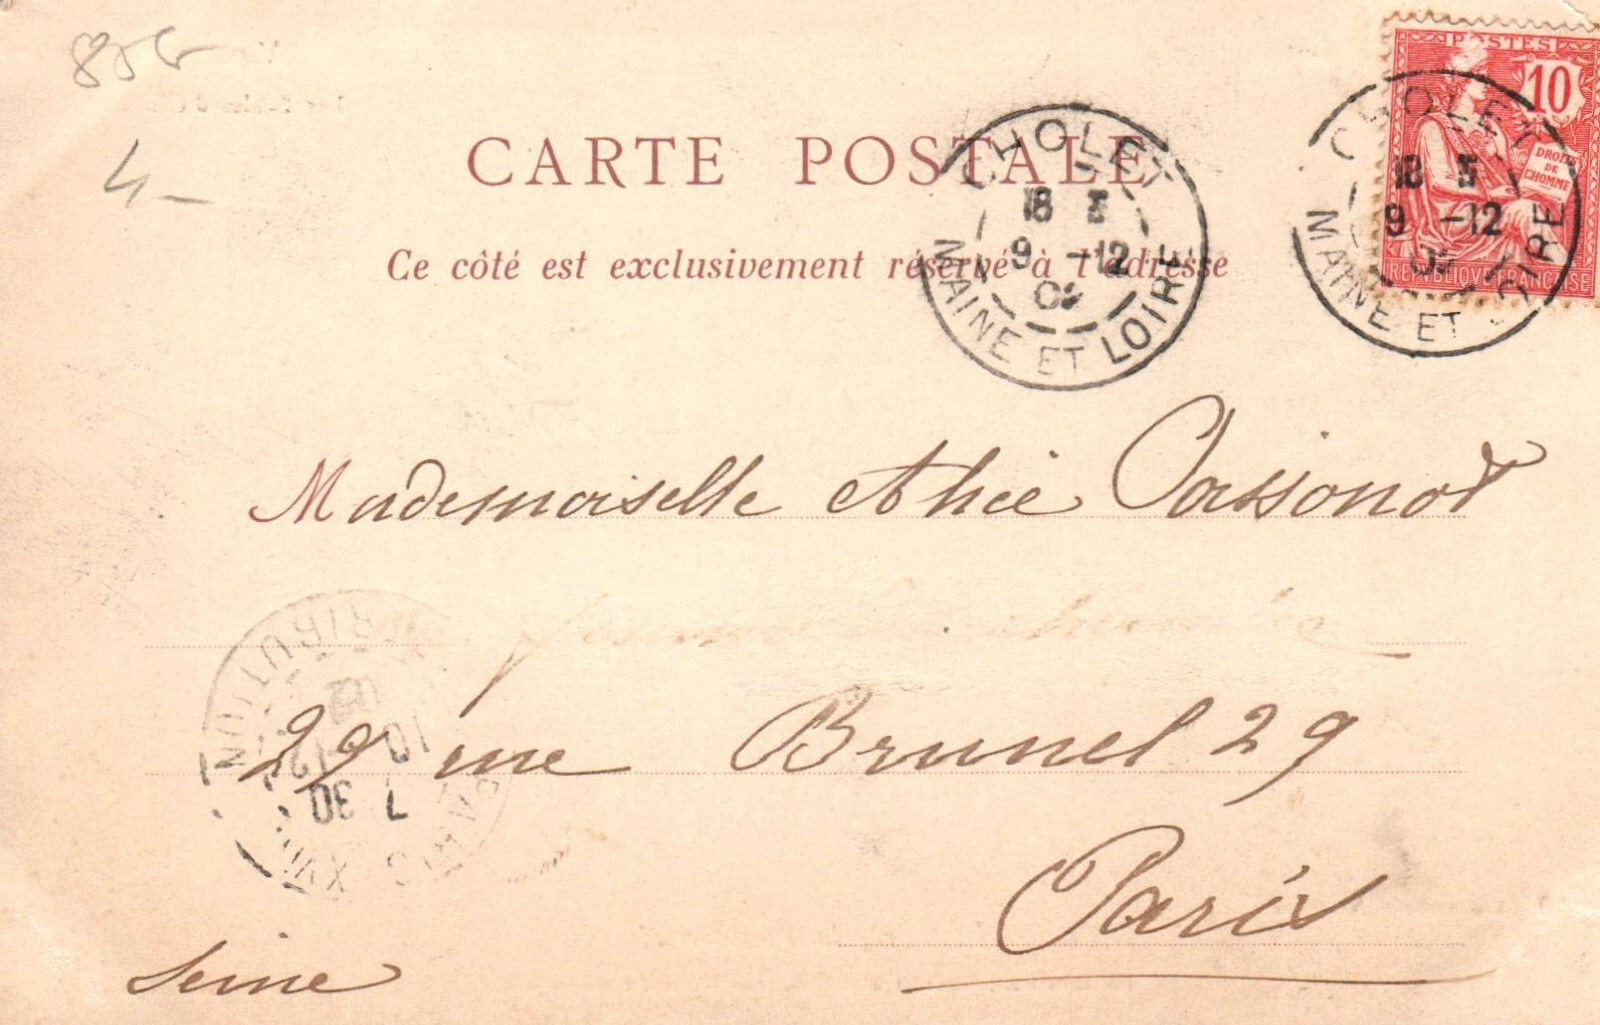 85G
4-
CARTE POSTALE
Ce côté est exclusivement réservé à l'adresse
CHOLET
18
9 -12
02
MAINE ET LOIRE
POSTES
10
DROITS
DE
L'HOMME
REPUBLIQUE FRANÇAISE
CHOLET
18
9 -12
MAINE ET LOIRE
Mademoiselle
29 rue Brunel 29
Paris
Seine
PARIS XVII
7 30
10 -12
02
DISTRIBUTION